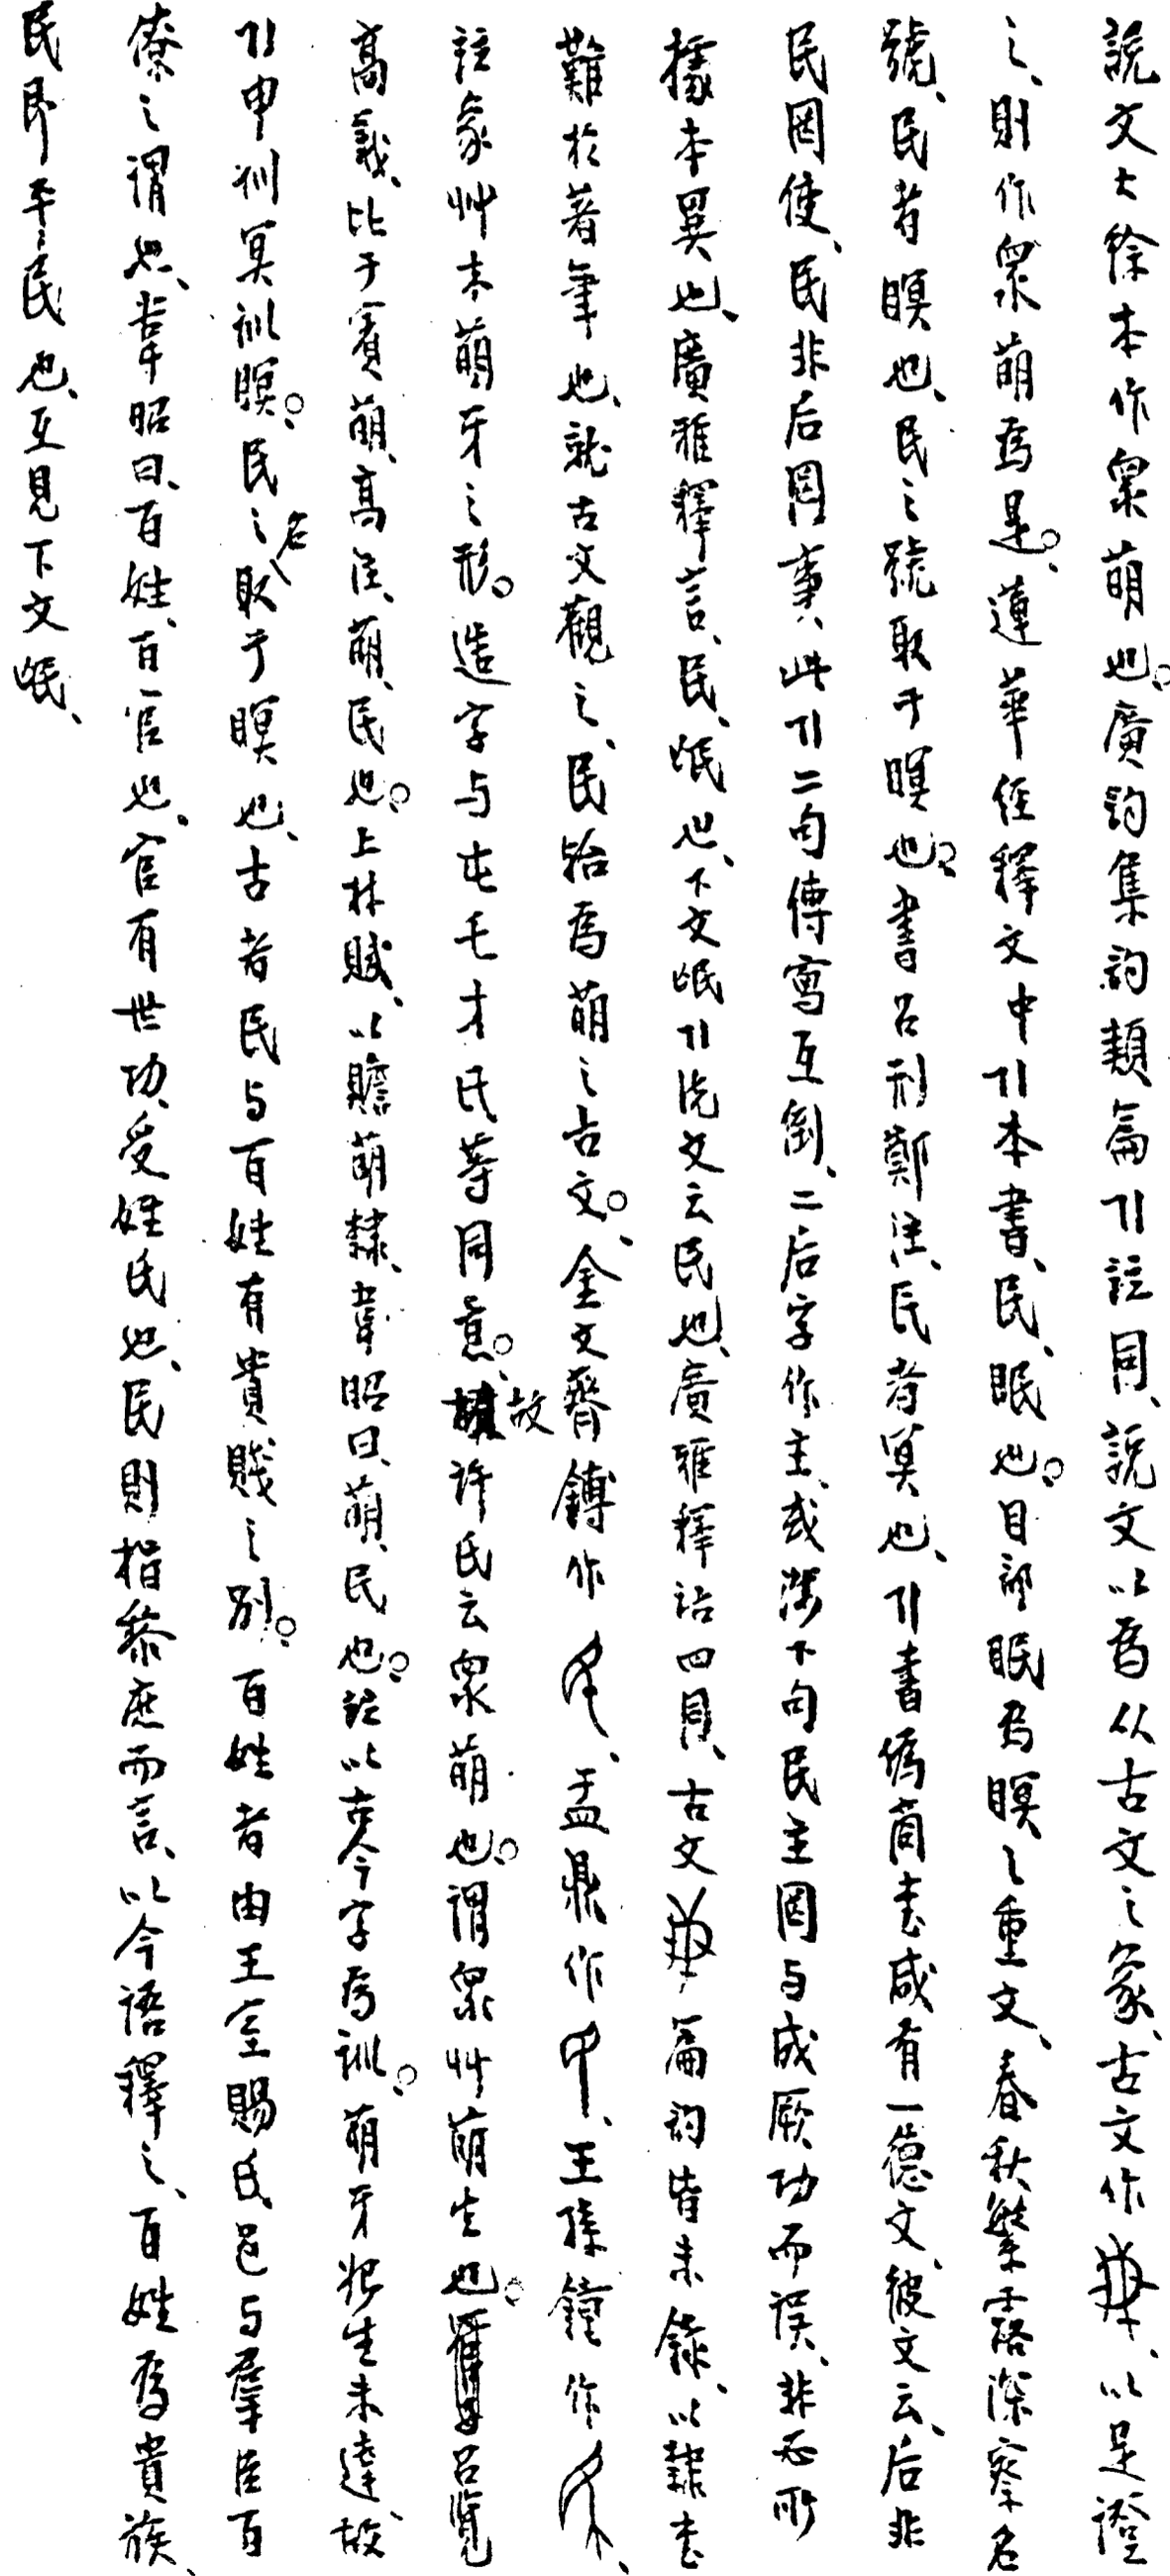 說文大徐本作衆萌也。廣韵集韵類篇引註同、說文以爲从古文之象、古文作、以是證
之、則作衆萌爲是。蓮華經釋文中引本書、民、眠也。目部眠爲瞑之重文、春秋繁露深察名
號、民者瞑也、民之號取于瞑也。書呂刑鄭注、民者冥也、引書僞蔄書咸有一德文、彼文云、后非
民罔使、民非后罔事、此引二句傳寫互倒、二后字作主、或涉下句民主罔与成厥功而誤、非丕所
據本異也、廣雅釋言、民、氓也、下文氓引說文云民也、廣雅釋詁四同、古文篇韵皆未錄、以隸書
難於著筆也、就古文觀之、民始爲萌之古文。金文齊鎛作、盂鼎作、王孫鐘作、
註象艸木萌牙之形。造字与屯乇才氏等同意。故許氏云衆萌也。謂衆艸萌生也。呂覽
高義、比于賓萌、高注、萌、民也。上林賦、以贍萌隸、韋昭曰、萌、民也。註以古今字爲訓。萌牙始生未達、故
引申訓冥訓瞑。民之名取于瞑也、古者民与百姓有貴賤之別。百姓者由王室賜氏邑与羣臣百
僚之謂也、韋昭曰、百姓、百官也、官有世功、受姓氏也、民則指黎庶而言、以今語釋之、百姓爲貴族、
民即平民也、互見下文氓、